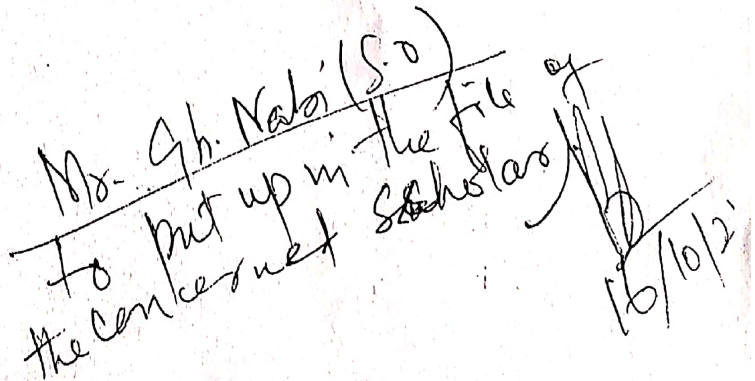 Mr. Gh. Nabi (S.O)
to put up in the file of
the concerned scholar
16/10/2